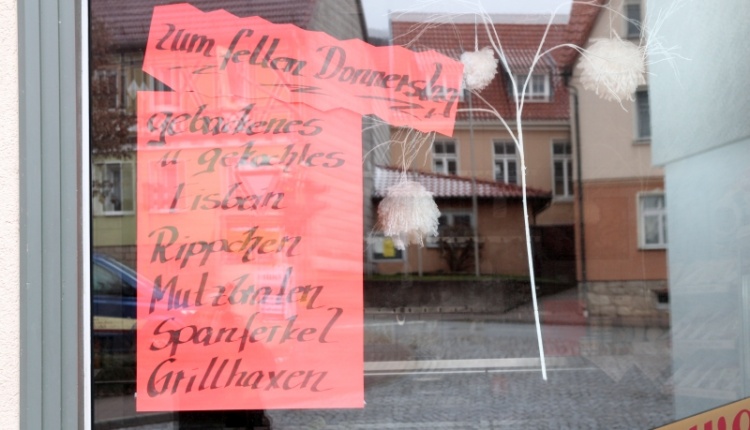 zum fetten Donnerstag
gebackenes
u gekochtes
Eisbein
Rippchen
Mutzbraten
Spanferkel
Grillhaxen